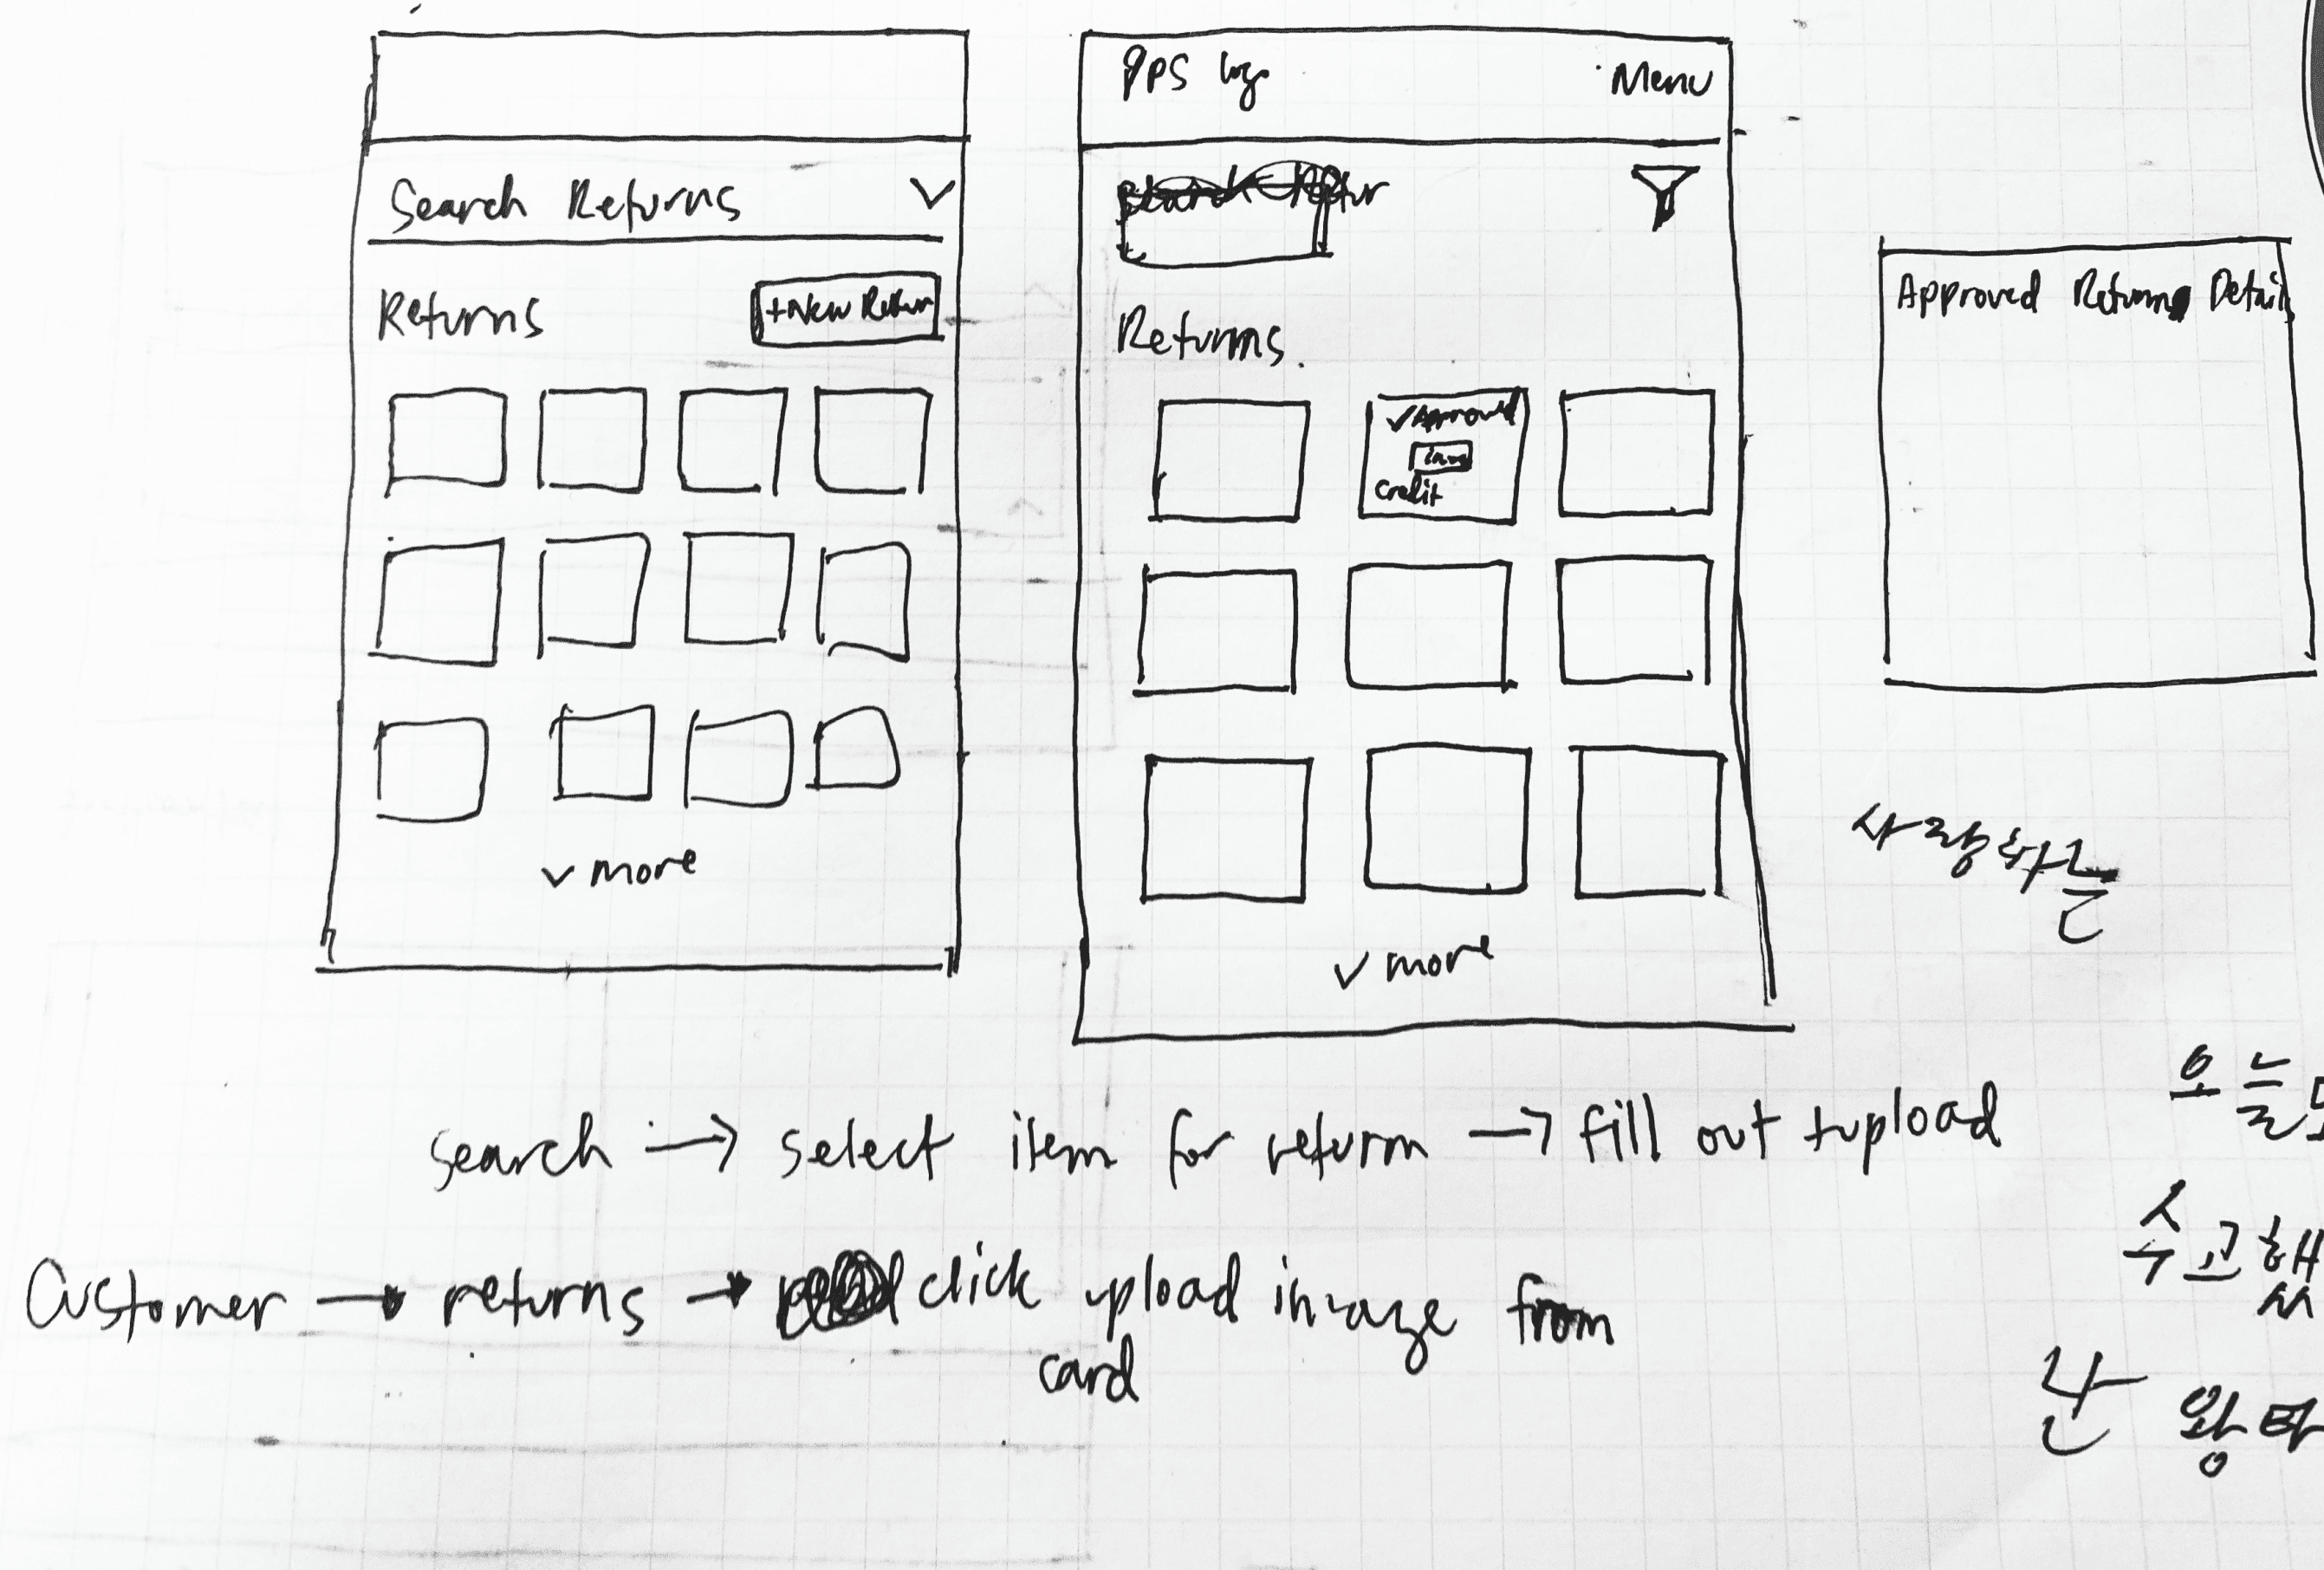 Search Returns
Returns
+New Retur
more
PPS logo
Menu
Returns.
Approved
Credit
more
Approved Return Detail
사랑하는
search → select item for return → fill out + upload
Customer → returns → click upload image from
card
오늘도
수고했
난 왕